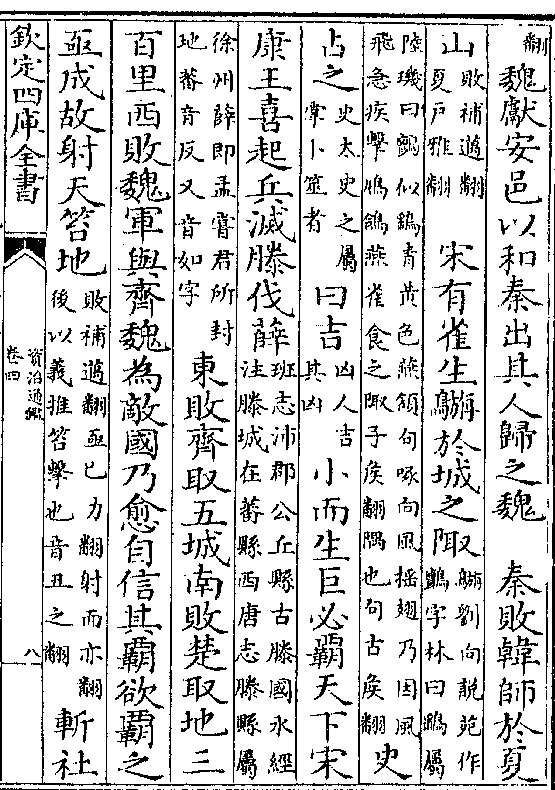 翻魏獻安邑以和秦出其人歸之魏　秦敗韓師於夏
山敗補邁翻夏戶雅翻　宋有雀生於城之陬劉向說苑作鸇字林曰鸇屬
陸璣曰鸇似鷂青黃色燕頷句喙向風摇翅乃因風飛急疾擊鳩鴿燕雀食之陬子侯翻隅也句古侯翻史
占之史太史之屬掌卜筮者曰吉凶人吉其凶小而生巨必霸天下宋
康王喜起兵滅滕伐薛班志沛郡公丘縣古滕國水經注滕城在蕃縣西唐志滕縣屬
徐州薛即孟嘗君所封地蕃音反又音如字東敗齊取五城南敗楚取地三
百里西敗魏軍與齊魏為敵國乃愈自信其霸欲霸之
亟成故射天笞地敗補邁翻亟已力翻射而亦翻後以義推笞擊也音丑之翻斬社
欽定四庫全書
資治通鑑
卷四
八